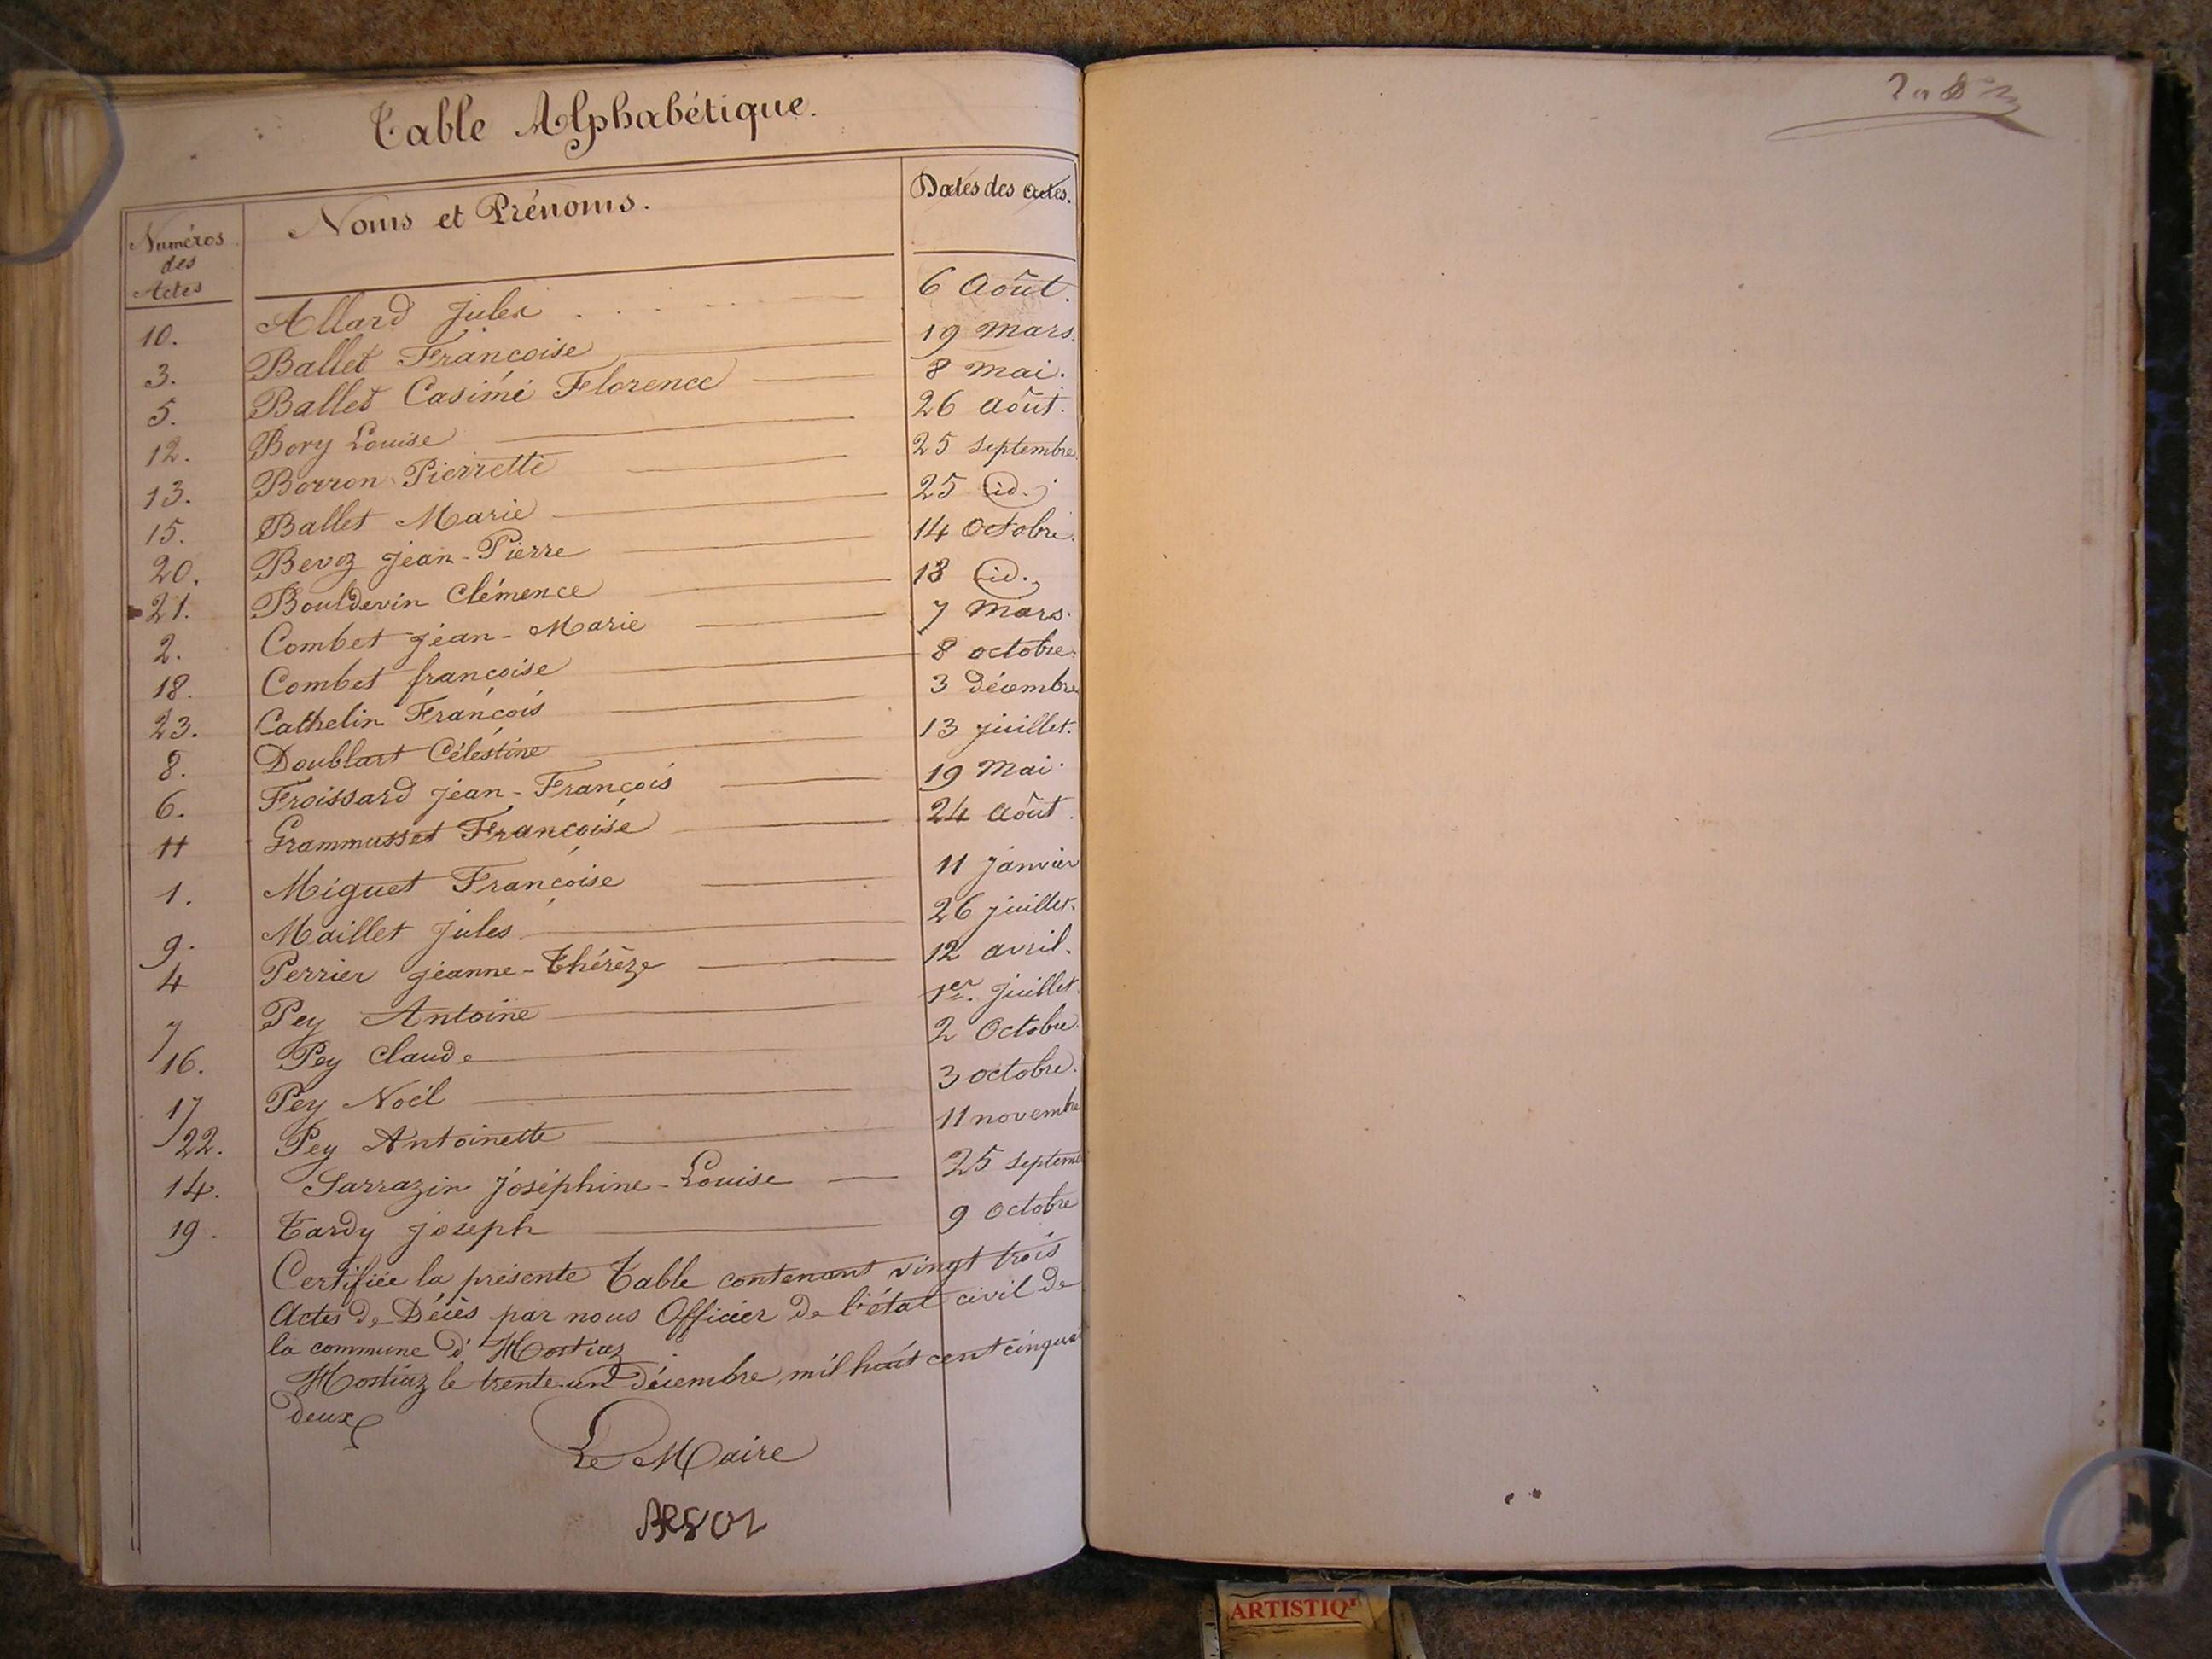 Table Alphabétique.
Numéros des Actes
Noms et Prénoms.
Dates des actes.
10. Allard Jules 6 Août.
3. Ballet Françoise 19 Mars.
5. Ballet Casimi Florence 8 Mai.
12. Bory Louise 26 Août.
13. Borron Pierrette 25 Septembre.
15. Ballet Marie 25 id.
20. Bevoz Jean-Pierre 14 Octobre.
21. Bouldevin Clémence 18 id.
2. Combet Jean-Marie 7 Mars.
18. Combet françoise 8 octobre.
23. Cathelin François 3 décembre
8. Doublart Célestine 13 juillet.
6. Froissard Jean-François 19 Mai.
11 Grammusset Françoise 24 Août.
1. Miguet Françoise 11 Janvier
9. Maillet Jules 26 juillet.
4 Perrier Jeanne-Thérèze 12 avril.
7 Pey Antoine 1er. Juillet.
16. Pey Claude 2 Octobre.
17 Pey Noël 3 octobre.
22. Pey Antoinette 11 novembre
14. Sarrazin Joséphine-Louise 25 septemb
19. Tardy Joseph 9 Octobre
Certifiée la présente Table contenant vingt trois
Actes de Décès par nous Officier de l'état civil de
la commune d'Hostiaz
Hostiaz le trente-un Décembre mil huit cent cinqua
deux
Le Maire
ARTISTIQ